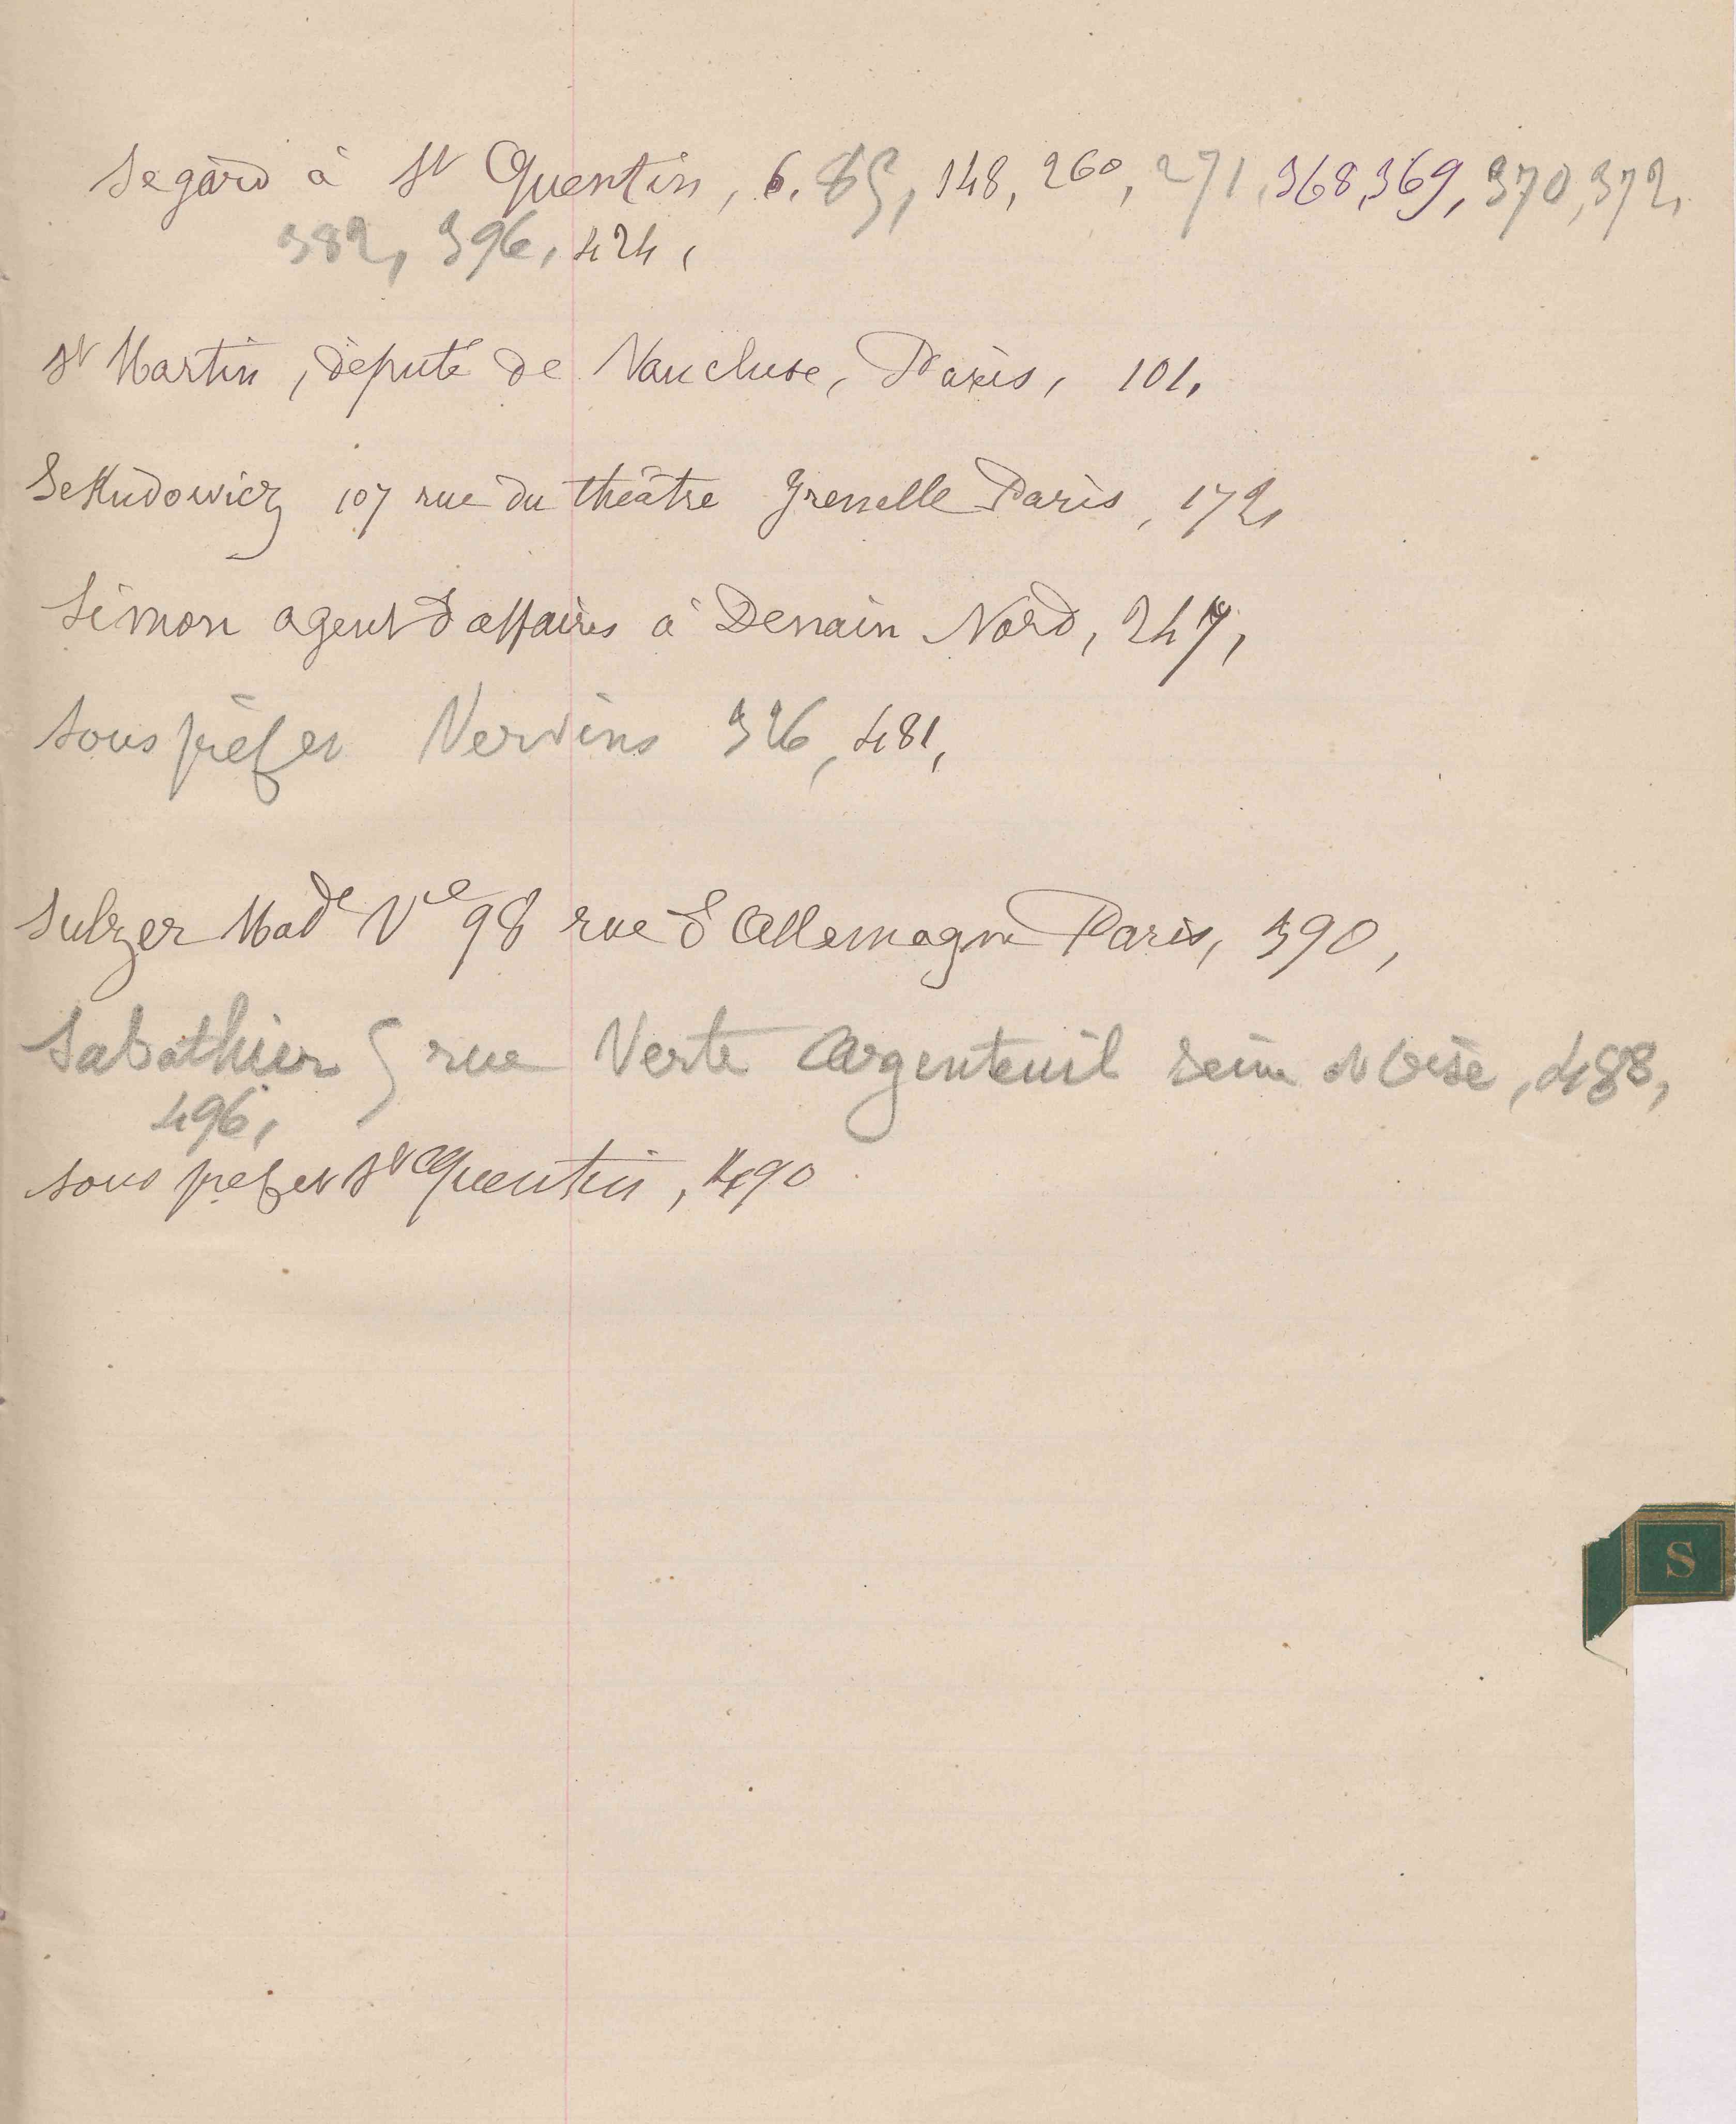 Segard à St Quentin, 6. 85, 148, 260, 271, 368, 369, 370, 372,
382, 396, 424,
St Martin, député de Vaucluse, Paris, 101,
Sekudowicz 107 rue du théâtre Grenelle Paris, 172,
Simon agent d'affaires à Denain Nord, 247,
sous préfet Vervins 326, 481,
Sulzer Made Ve 98 rue d'Allemagne Paris, 390,
Sabathier 5 rue Verte Argenteuil Seine et Oise, 488,
496,
sous préfet St Quentin, 490
S